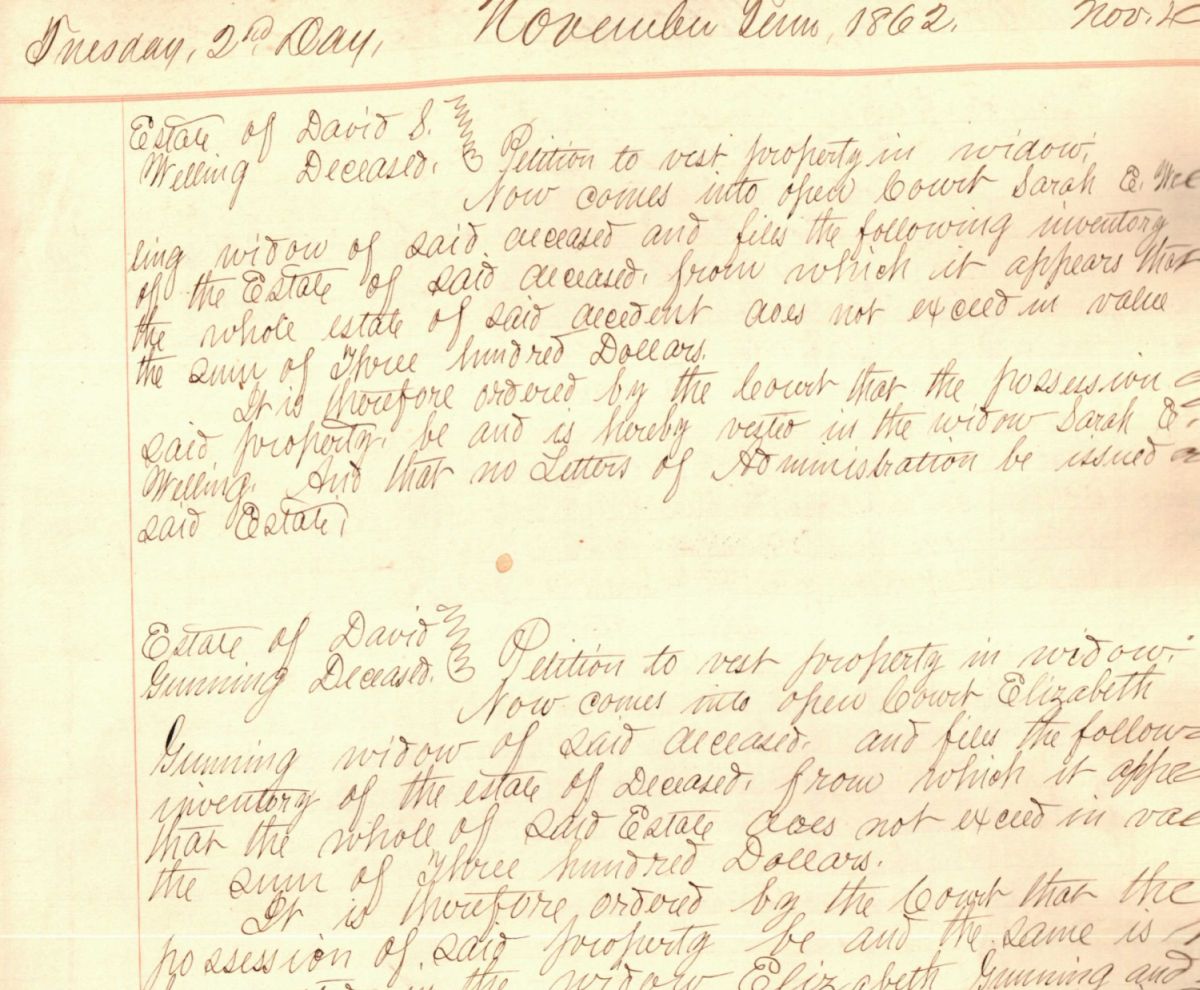 Tuesday, 2nd Day, November Term, 1862. Nov. 4
Estate of David S.
Welling Deceased. Petition to vest property in widow.
Now comes into open Court Sarah E. Wel
ling widow of said deceased and files the following inventory
of the Estate of said deceased. from which it appears that
the whole estate of said decedent does not exceed in value
the sum of Three hundred Dollars.
It is therefore ordered by the Court that the possession
said property, be and is hereby vested in the widow Sarah E.
Welling. And that no Letters of Administration be issued
said Estate.
Estate of David
Gunning Deceased. Petition to vest property in widow.
Now comes into open Court Elizabeth
Gunning widow of said deceased. and files the follow
inventory of the estate of Deceased. from which it appe
that the whole of said Estate does not exceed in va
the sum of Three hundred Dollars.
It is therefore ordered by the Court that the
possession of said property be and the same is
in the widow Elizabeth Gunning and